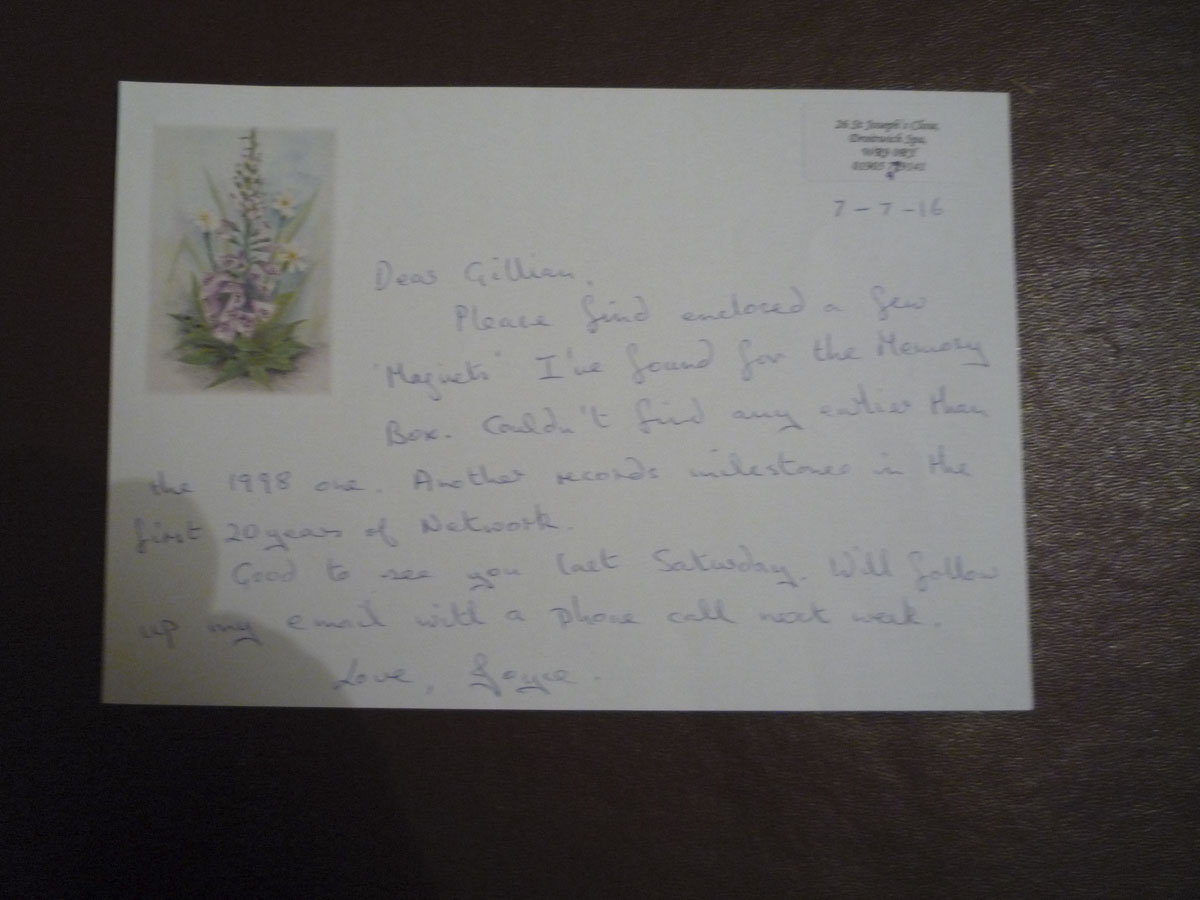 26 St Joseph's Close,
Droitwich Spa,
7-7-16
Dear Gillian,
Please find enclosed a few
'Magnets' I've found for the Memory
Box. Couldn't find any earlier than
the 1998 one. Another records milestones in the
first 20 years of Network.
Good to see you last Saturday. Will follow
up my email with a phone call next week.
Love, Joyce.